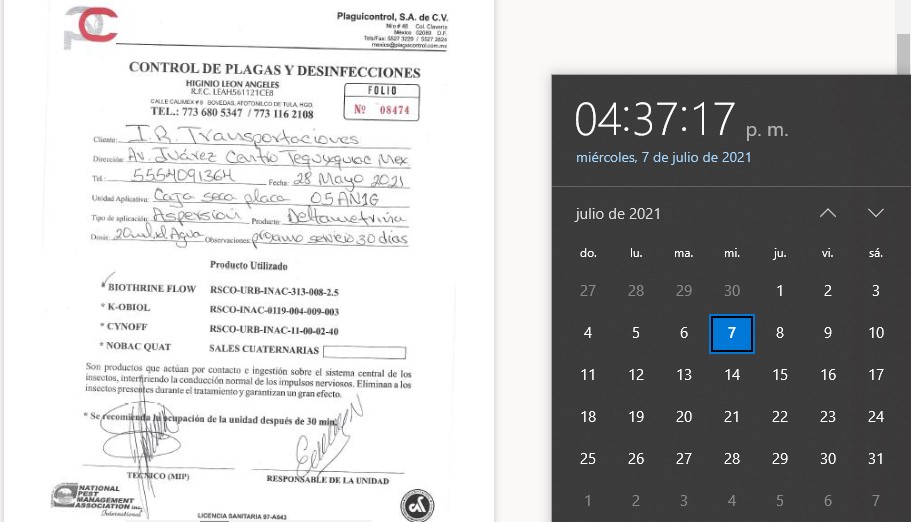 Plaguicontrol, S.A. de C.V.
México 02080 D.F.
Tels/Fax: 5527 3229 / 5527 2824
mexico@plaguicontrol.com.mx
CONTROL DE PLAGAS Y DESINFECCIONES
HIGINIO LEON ANGELES
R.F.C. LEAH561121CE8
CALLE CALIMEX # 9 BOVEDAS, ATOTONILCO DE TULA, HGO.
TEL.: 773 680 5347 / 773 116 2108
FOLIO
Nº 08474
Cliente: I.R. Transportaciones
Dirección: Av. Juárez Centro Tequixquiac Mex
Tel.: 5554091364 Fecha: 28 Mayo 2021
Unidad Aplicativa: Caja seca placa 05AN1G
Tipo de aplicación: Aspersión Producto: Deltametrina
Dosis: 20ml.xl.Agua Observaciones: próximo servicio 30 dias
Producto Utilizado
* BIOTHRINE FLOW RSCO-URB-INAC-313-008-2.5
* K-OBIOL RSCO-INAC-0119-004-009-003
* CYNOFF RSCO-URB-INAC-11-00-02-40
* NOBAC QUAT SALES CUATERNARIAS
Son productos que actúan por contacto e ingestión sobre el sistema central de los
insectos, interfiriendo la conducción normal de los impulsos nerviosos. Eliminan a los
insectos presentes durante el tratamiento y garantizan un gran efecto.
* Se recomienda la ocupación de la unidad después de 30 min.
TECNICO (MIP)
RESPONSABLE DE LA UNIDAD
NATIONAL
PEST
MANAGEMENT
ASSOCIATION Inc.
International
LICENCIA SANITARIA 97-A043
04:37:17 p. m.
miércoles, 7 de julio de 2021
julio de 2021
do. lu. ma. mi. ju. vi. sá.
27 28 29 30 1 2 3
4 5 6 7 8 9 10
11 12 13 14 15 16 17
18 19 20 21 22 23 24
25 26 27 28 29 30 31
1 2 3 4 5 6 7